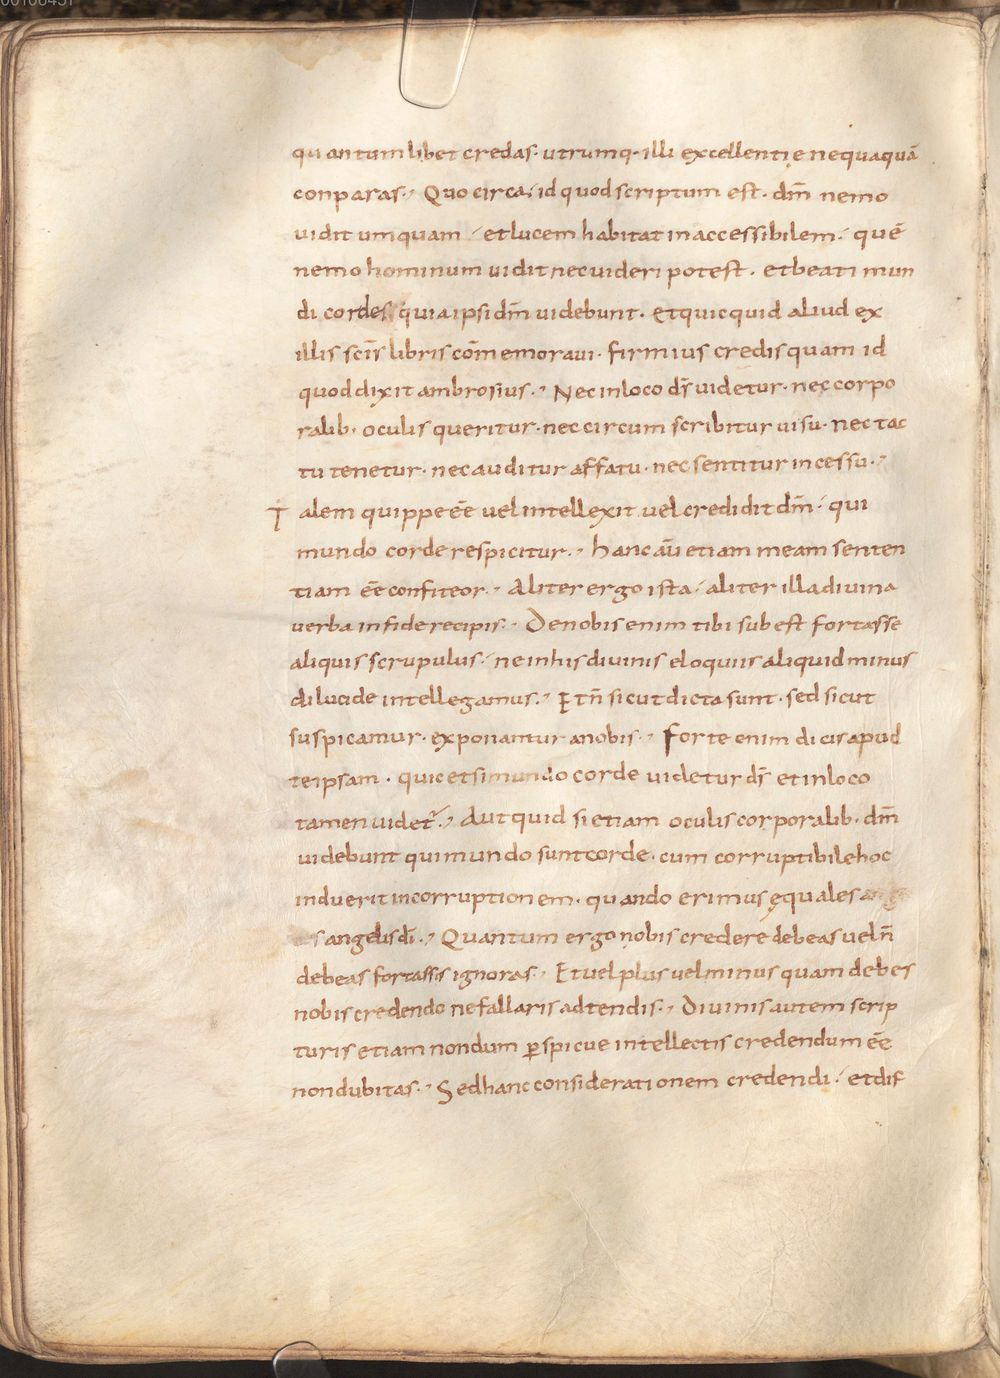 quantum libet credas· utrumq· illi excellentię nequaquā
conparas·, Quo circa; id quod scriptum est· dm̄ nemo
uidit umquam; et lucem habitat inaccessibilem; quē
nemo hominum uidit nec uideri potest· et beati mun
di cordes quia ipsi dm̄ uidebunt· et quicquid aliud ex
illis sc̄is libris com̄emoraui· firmius credis quam id
quod dixit ambrosius·, Nec in loco ds̄ uidetur· nec corpo
ralib· oculis queritur· nec circum scribitur uisu· nec tac
tu tenetur· nec auditur affatu· nec sentitur incessu·,
Talem quippe eē uel intellexit uel credidit dm̄; qui
mundo corde respicitur·, hanc aū etiam meam senten
tiam eē confiteor·, Aliter ergo ista; aliter illa diuina
verba in fide recipis·, De nobis enim tibi subest fortasse
aliquis scrupulus; ne in his diuinis eloquiis aliquid minus
dilucide intellegamus·, Et n̄ sicut dicta sunt· sed sicut
suspicamur· exponantur a nobis·, Forte enim dicis apud
te ipsam· quic etsi mundo corde uidetur ds̄ et in loco
tamen uidet̄·, Aut quid si etiam oculis corporalib· dm̄
uidebunt qui mundo sunt corde· cum corruptibile hoc
induerit incorruptionem· quando erimus ęquales
angelis dī·, Quantum ergo nobis credere debeas uel n̄
debeas fortassis ignoras·, Et uel plus uel minus quam debes
nobis credendo ne fallaris adtendis·, Diuinis autem scrip
turis etiam nondum p̱spicue intellectis credendum eē
non dubitas·, Sed hanc considerationem credendi; et dif